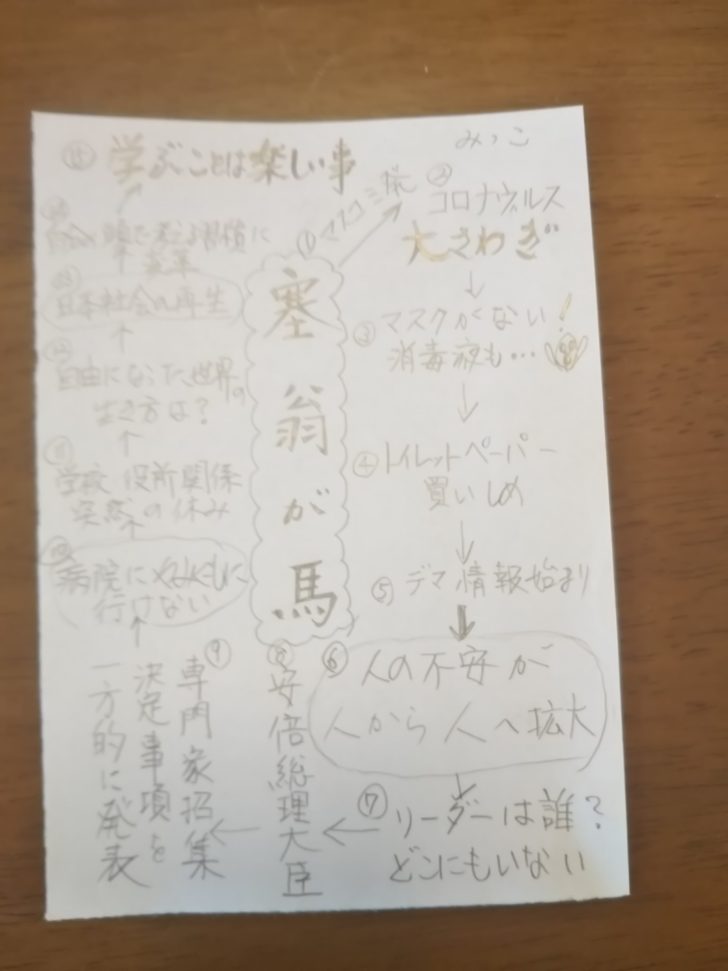 みっこ
塞翁が馬
①マスコミ
②
コロナウィルス
大さわぎ
③マスクがない!
消毒液も…
④トイレットペーパー
買いしめ
⑤デマ情報始まり
⑥人の不安が
人から人へ拡大
⑦リーダーは誰?
どこにもいない
⑧安倍総理大臣
⑨専門家招集
決定事項を
一方的に発表
⑩
病院に
行けない
⑪
学校 役所関係
突然の休み
⑫
自由になった世界の
生き方は?
⑬
日本社会の再生
⑭
習慣に
変革
⑮学ぶことは楽しい事